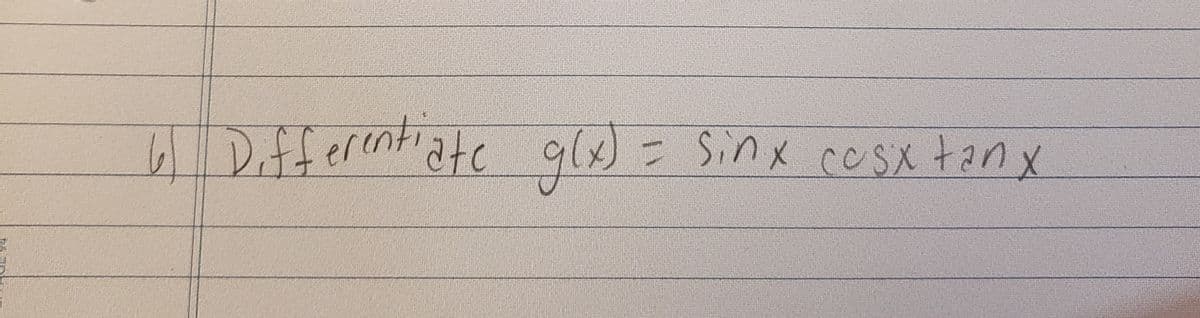 6) Differentiate g(x) = sinx cosx tanx